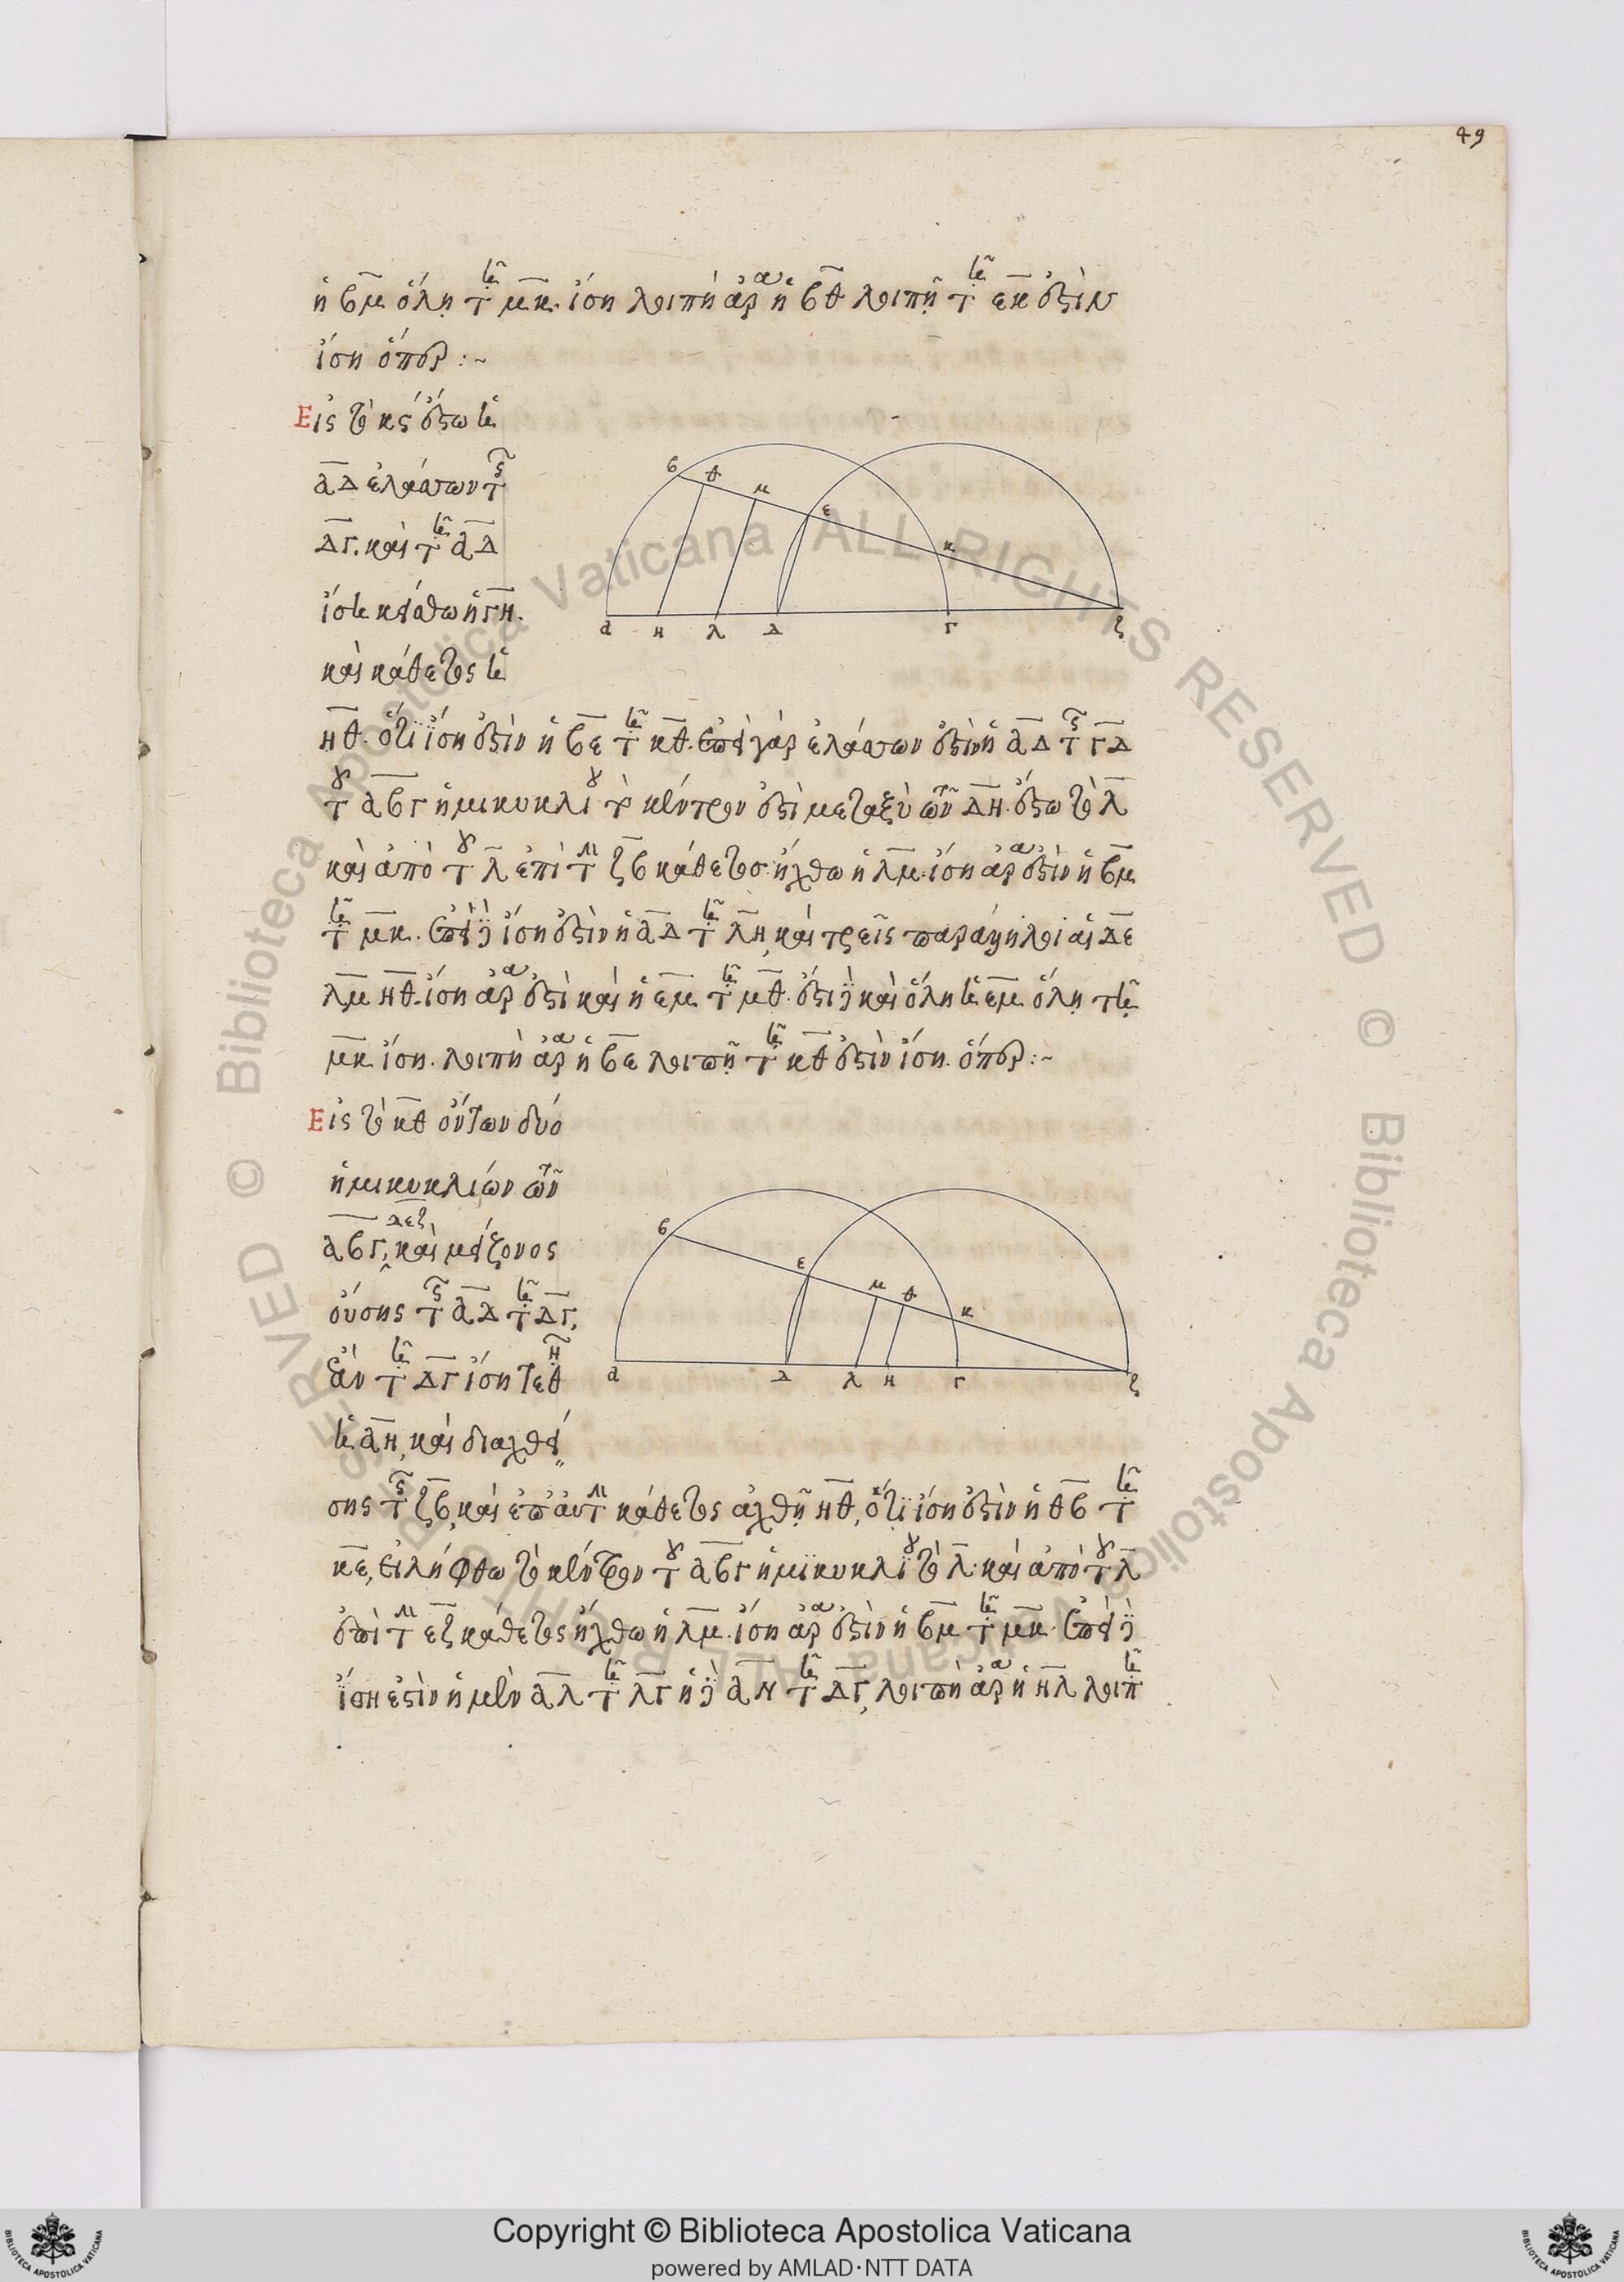 49
ἡ βμ ὅλῃ τῇ μκ ἴση λοιπὴ ἄρα ἡ βθ λοιπῇ τῇ εκ ἐστὶν
ἴση ὅπερ :~
Εἰς τὸ κϛ ἔστω ἡ
αδ ἐλάττων τῆς
δγ. καὶ τῇ αδ
ἴση κείσθω ἡ γη.
καὶ κάθετος ἡ
ηθ. ὅτι ἴση ἐστὶν ἡ βε τῇ κθ. ἐπεὶ γὰρ ἐλάττων ἐστὶν ἡ αδ τῆς γδ
τοῦ αβγ ἡμικυκλίου τὸ κέντρον ἐστὶ μεταξὺ τῶν δη. ἔστω τὸ λ
καὶ ἀπὸ τοῦ λ ἐπὶ τὴν ζβ κάθετος ἤχθω ἡ λμ. ἴση ἄρα ἐστὶν ἡ βμ
τῇ μκ. ἐπεὶ δὲ ἴση ἐστὶν ἡ αδ τῇ λη, καὶ τρεῖς παράλληλοι αἱ δε
λμ ηθ. ἴση ἄρα ἐστὶ καὶ ἡ εμ τῇ μθ. ἔστι δὲ καὶ ὅλη ἡ εμ ὅλῃ τῇ
μκ ἴση. λοιπὴ ἄρα ἡ βε λοιπῇ τῇ κθ ἐστὶν ἴση. ὅπερ :~
Εἰς τὸ κθ ὄντων δύο
ἡμικυκλίων τῶν
αβγ, δεζ καὶ μείζονος
οὔσης τῆς αδ τῆς δγ,
ἐὰν τῇ δγ ἴση τεθῇ
ἡ αη, καὶ διαχθεί
σης τῆς ζβ, καὶ ἐπ αὐτὴν κάθετος ἀχθῇ ηθ, ὅτι ἴση ἐστὶν ἡ θβ τῇ
κε, εἰλήφθω τὸ κέντρον τοῦ αβγ ἡμικυκλίου τὸ λ. καὶ ἀπὸ τοῦ λ
ἐπὶ τὴν εζ κάθετος ἤχθω ἡ λμ. ἴση ἄρα ἐστὶν ἡ βμ τῇ μκ. ἐπεὶ δὲ
ἴση ἐστὶν ἡ μὲν αλ τῇ λγ ἡ δὲ αν τῇ δγ, λοιπὴ ἄρα ἡ ηλ λοιπῇ
β θ μ ε κ
α η λ δ γ ζ
β ε μ θ κ
α δ λ η γ ζ
© Biblioteca Apostolica Vaticana ALL RIGHTS RESERVED
© Biblioteca Apostolica Vaticana ALL RIGHTS RESERVED
Copyright © Biblioteca Apostolica Vaticana
powered by AMLAD·NTT DATA
BIBLIOTECA APOSTOLICA VATICANA
BIBLIOTECA APOSTOLICA VATICANA